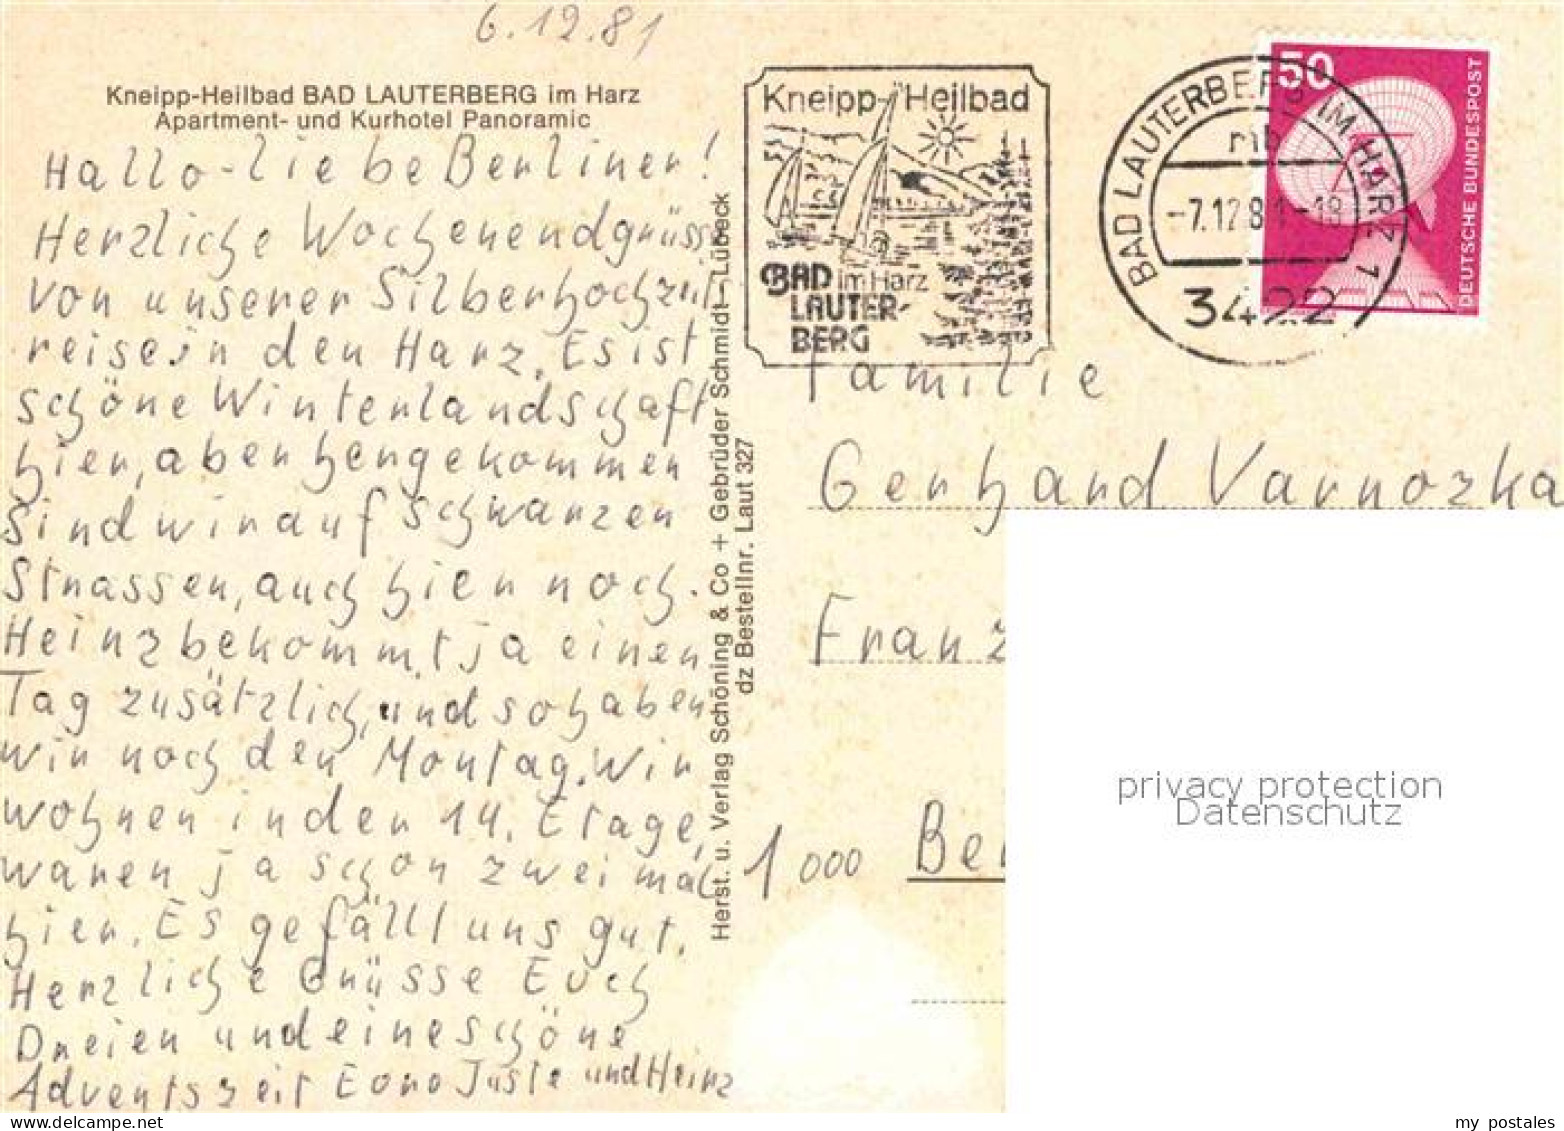 6.12.81
Kneipp-Heilbad BAD LAUTERBERG im Harz
Apartment- und Kurhotel Panoramic
Hallo-liebe Berliner!
Herzliche Wochenendgrüsse
von unserer Silberhochzeits
reise in den Harz. Es ist
schöne Winterlandschaft
hier, aber hergekommen
sind wir auf schwarzen
Strassen, auch hier noch.
Heinz bekommt ja einen
Tag zusätzlich, und so haben
wir noch den Montag. Wir
wohnen in der 14. Etage,
waren ja schon zweimal
hier. Es gefällt uns gut.
Herzliche Grüsse Euch
Dreien und eine schöne
Adventszeit Eure und Heinz
Herst. u. Verlag Schöning & Co + Gebrüder Schmidt – Lübeck
dz Bestellnr. Laut 327
Kneipp-Heilbad
BAD im Harz
LAUTER-
BERG
BAD LAUTERBERG IM HARZ 1
mb
-7.12.81-18
3422
50
DEUTSCHE BUNDESPOST
Familie
Gerhard Varnozka
Franz
1000 Ber
privacy protection
Datenschutz
my postales